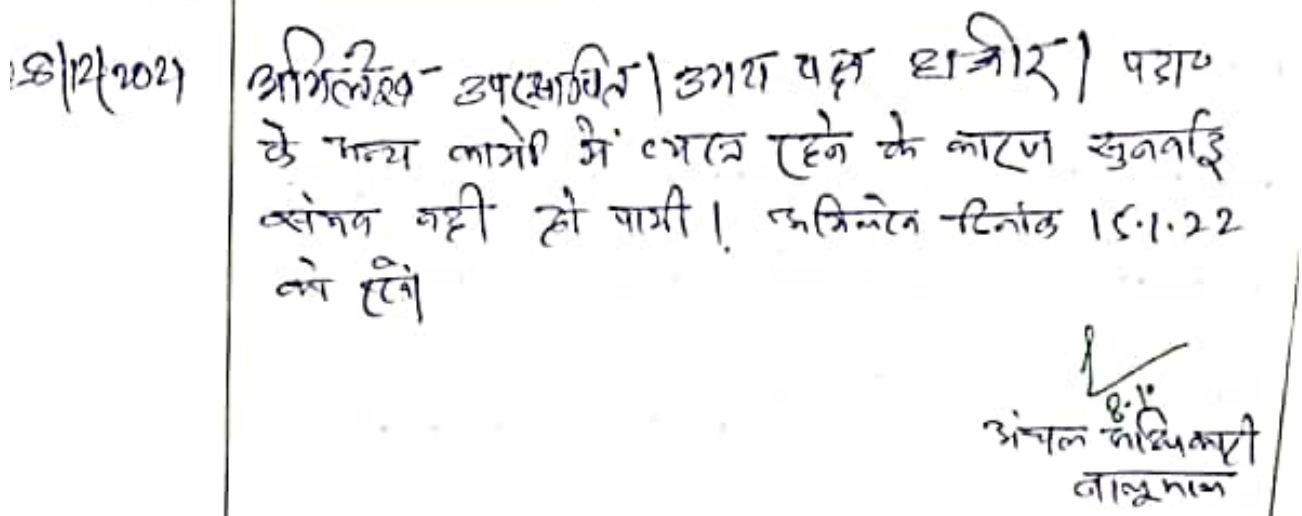 8/12/2021 अभिलेख उपस्थापित। उभय पक्ष हाजीर। पदा०
के अन्य कार्यो में व्यस्त रहने के कारण सुनवाई
संभव नही हो पायी। अभिलेख दिनांक 15.1.22
को रखें।
8.1
अंचल अधिकारी